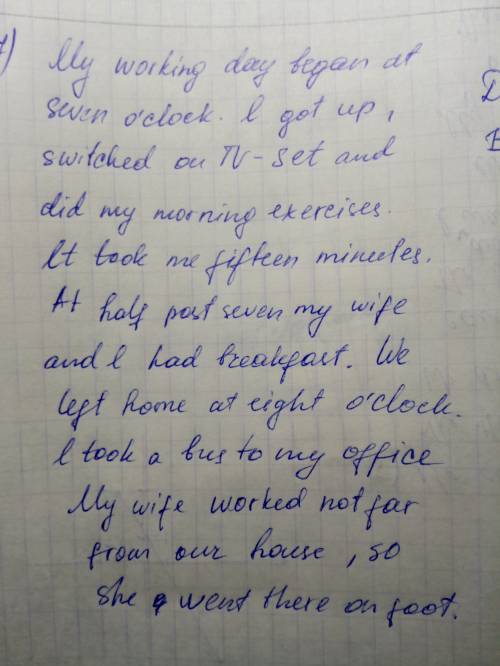 7) My working day began at
seven o'clock. I got up,
switched on TV-set and
did my morning exercises.
It took me fifteen minutes.
At half past seven my wife
and I had breakfast. We
left home at eight o'clock.
I took a bus to my office
My wife worked not far
from our house, so
she went there on foot.